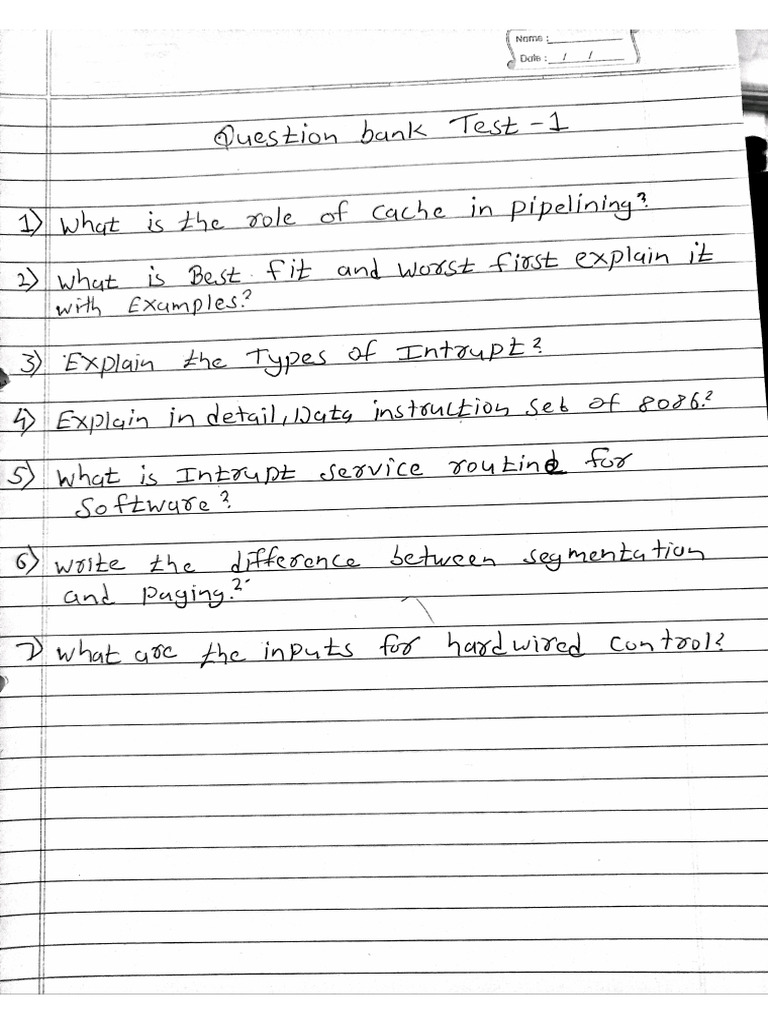 Name :
Date : / /
Question bank Test - 1
1) What is the role of cache in pipelining?
2) What is Best fit and worst first explain it
with Examples?
3) Explain the Types of Intrupt?
4) Explain in detail, Data instruction set of 8086?
5) What is Intrupt service routine for
Software?
6) Write the difference between segmentation
and paging?
7) What are the inputs for hardwired control?